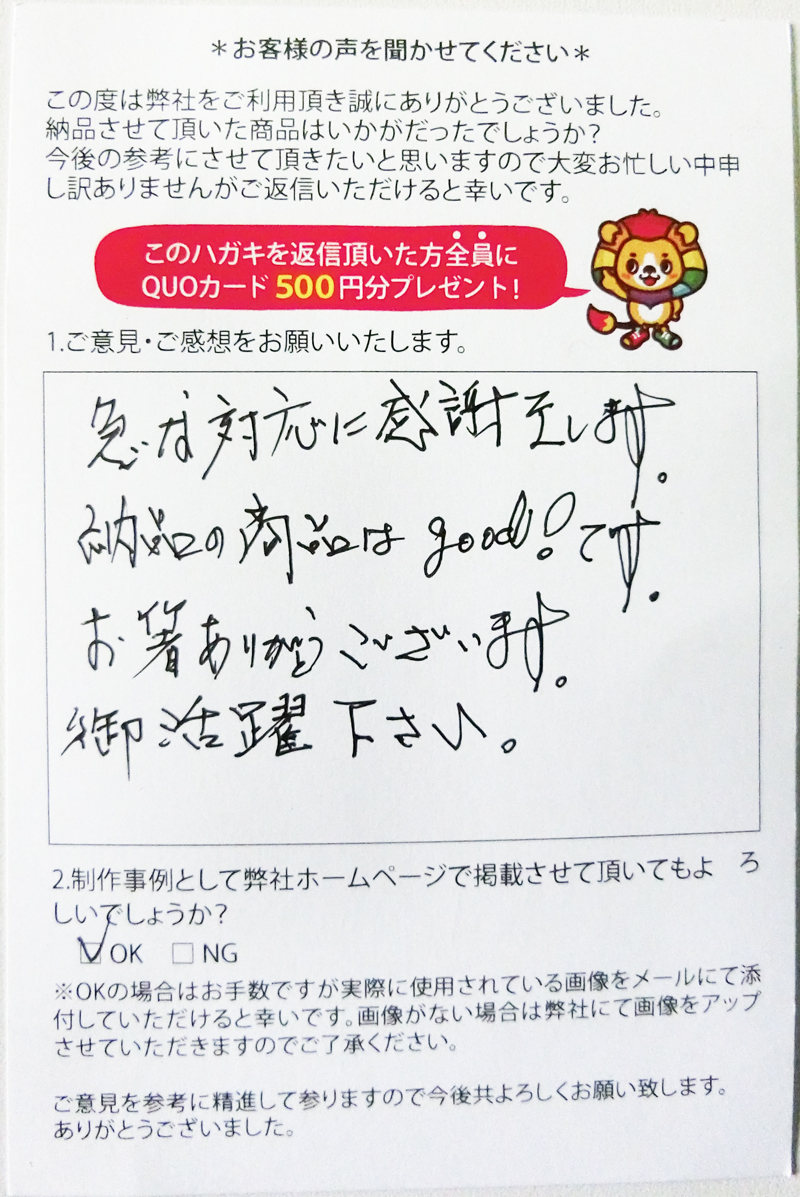 ＊お客様の声を聞かせてください＊
この度は弊社をご利用頂き誠にありがとうございました。
納品させて頂いた商品はいかがだったでしょうか？
今後の参考にさせて頂きたいと思いますので大変お忙しい中申
し訳ありませんがご返信いただけると幸いです。
このハガキを返信頂いた方全員に
QUOカード500円分プレゼント！
1.ご意見・ご感想をお願いいたします。
急な対応に感謝至します。
納品の商品は good！です。
お箸ありがとうございます。
御活躍下さい。
2.制作事例として弊社ホームページで掲載させて頂いてもよろ
しいでしょうか？
☑OK □NG
※OKの場合はお手数ですが実際に使用されている画像をメールにて添
付していただけると幸いです。画像がない場合は弊社にて画像をアップ
させていただきますのでご了承ください。
ご意見を参考に精進して参りますので今後共よろしくお願い致します。
ありがとうございました。